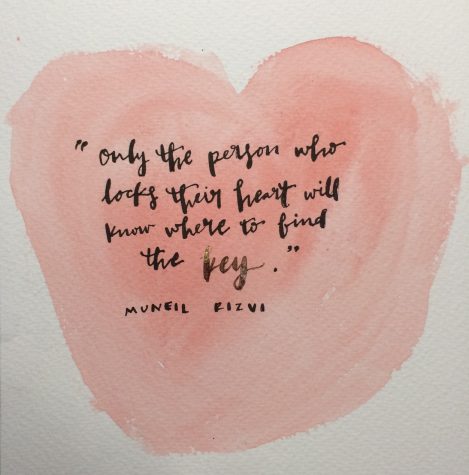 " only the person who
locks their heart will
know where to find
the key ."
MUNEIL RIZVI